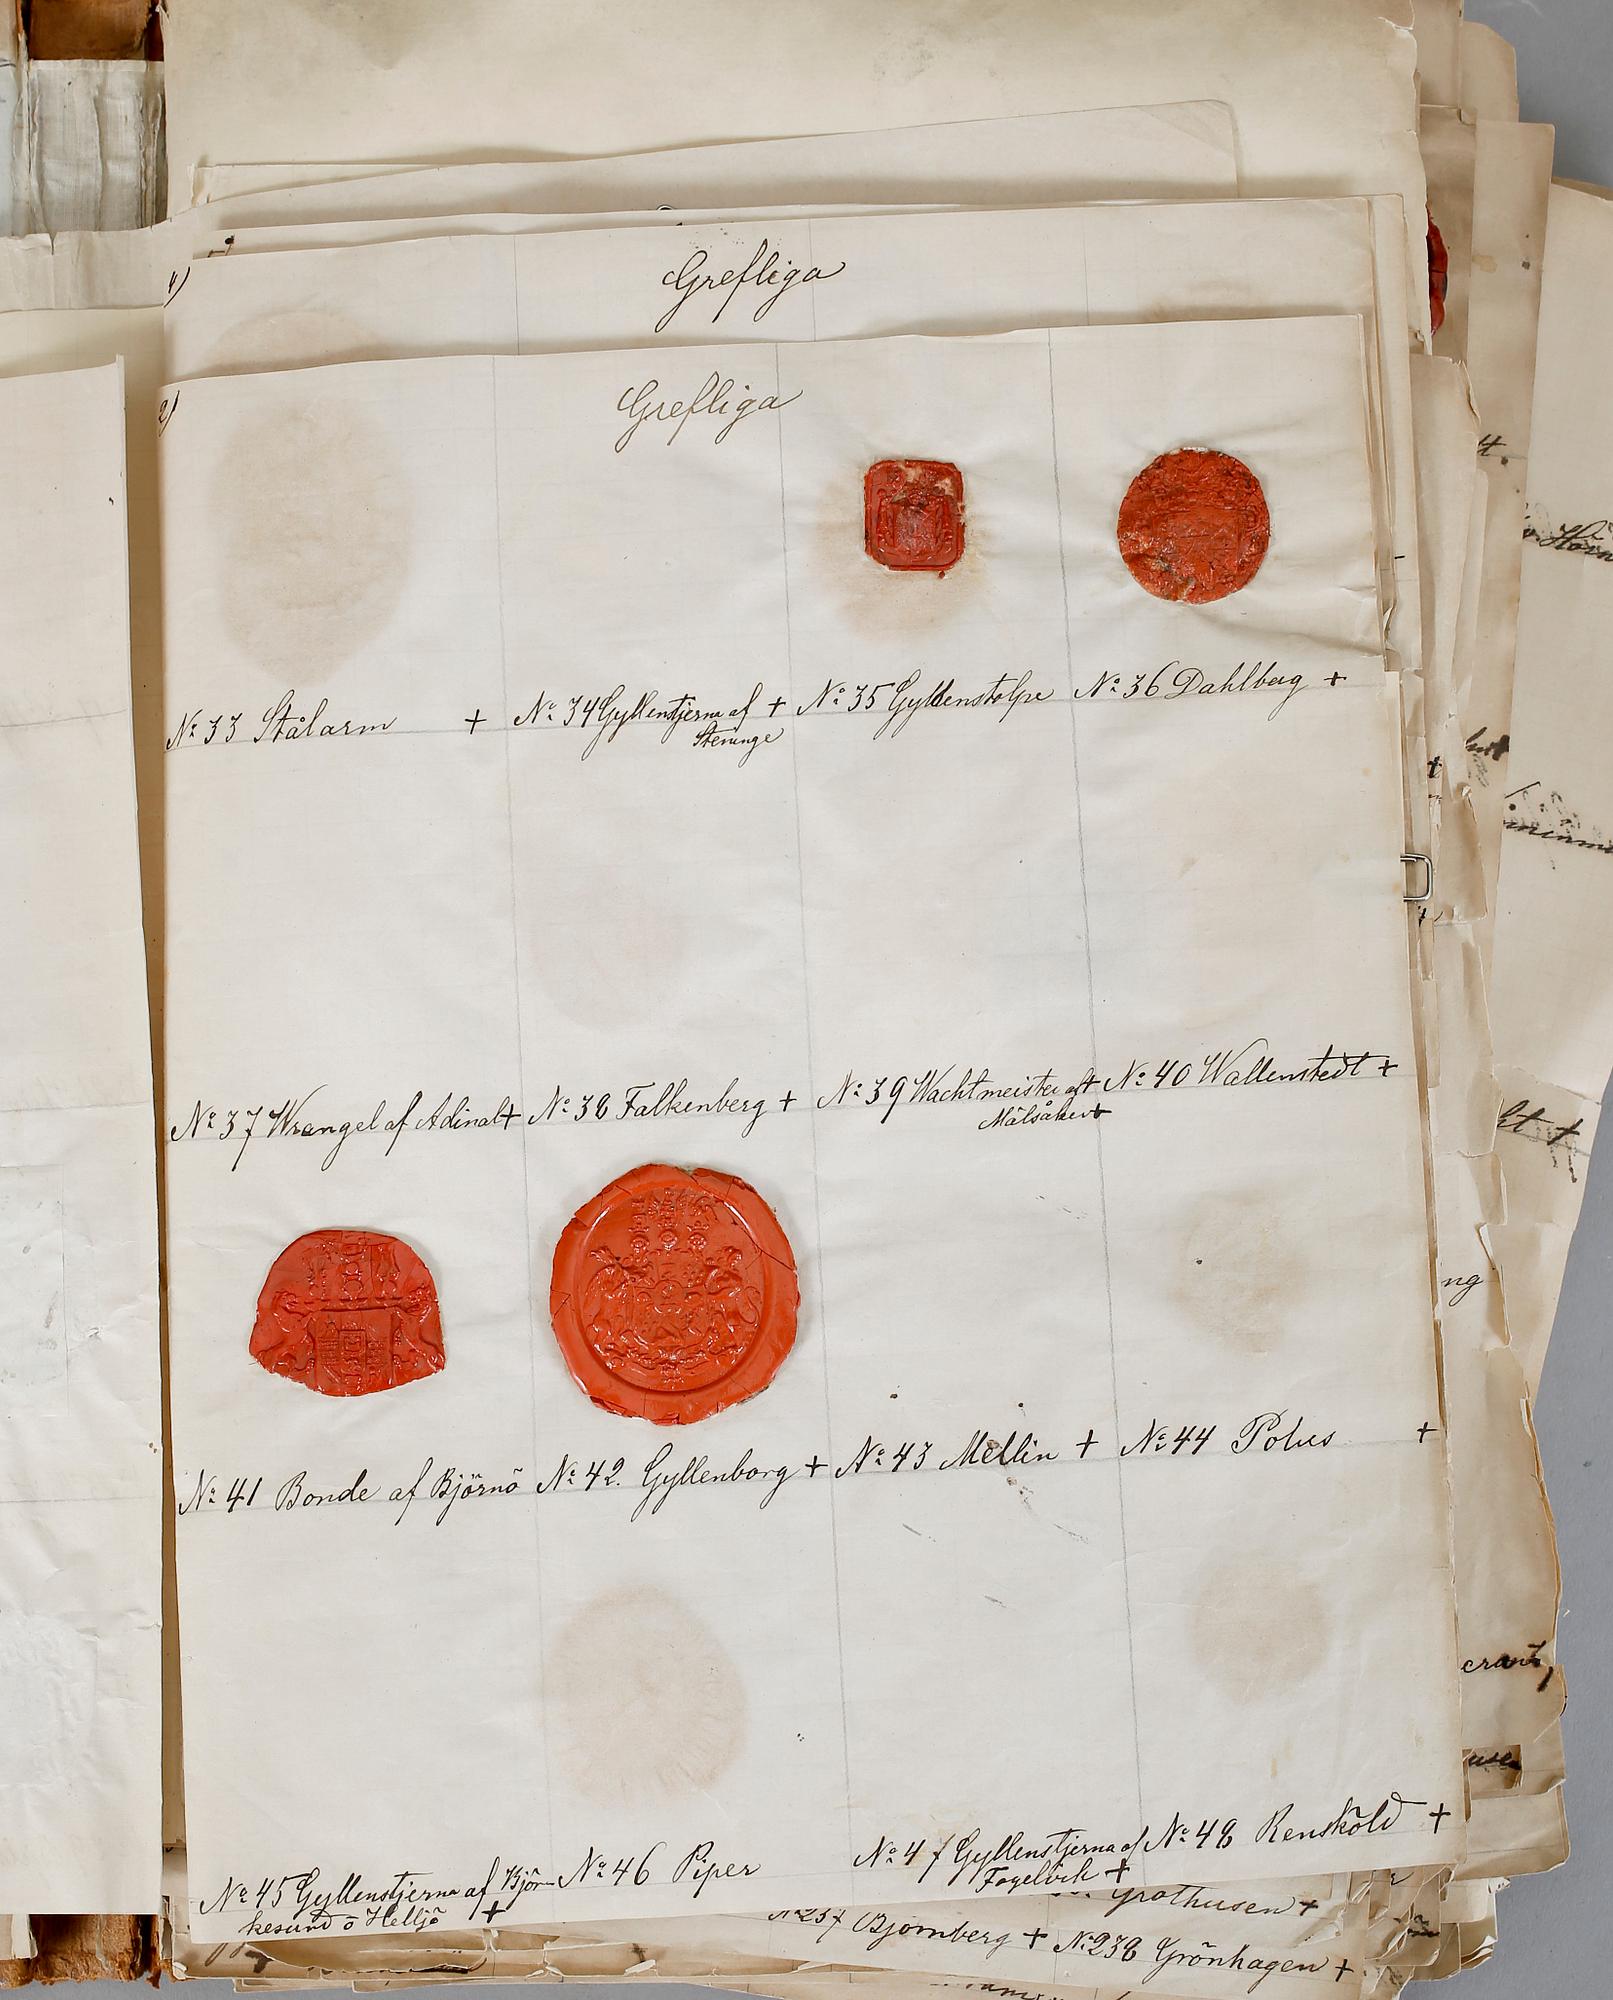 1)
Grefliga
2)
Grefliga
No 33 Stålarm +
No 34 Gyllenstjerna af +
Steninge
No 35 Gyldenstolpe
No 36 Dahlberg +
No 37 Wrangel af Adinal +
No 38 Falkenberg +
No 39 Wachtmeister af +
Mälsåker +
No 40 Wallenstedt +
No 41 Bonde af Björnö
No 42. Gyllenborg +
No 43 Mellin +
No 44 Polus +
No 45 Gyllenstjerna af Björ-
kesund o Helljö +
No 46 Piper
No 47 Gyllenstjerna af
Fogelvik +
No 48 Renskold +
Grothusen +
No 237 Björnberg +
No 238 Grönhagen +
ng